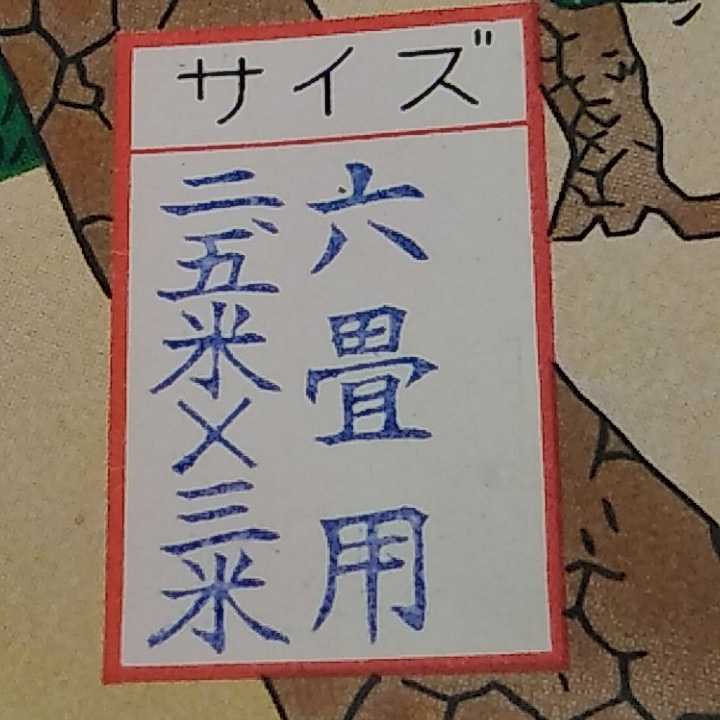 サイズ
六畳用
二、五米×三米